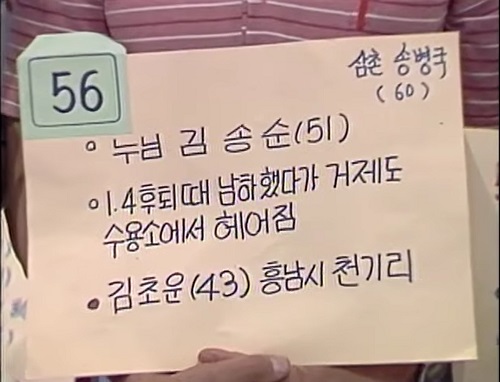 56
삼촌 송병국
(60)
누님 김송순(51)
1.4후퇴때 남하했다가 거제도
수용소에서 헤어짐
김초운(43) 흥남시 천기리